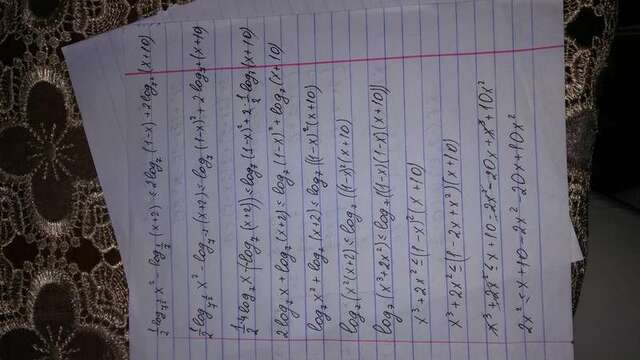 ½ log_{7^{½}} x² - log_{1/7} (x+2) ≤ 2log₇ (1-x) + 2log_{7²} (x+10)
½ log_{7^{½}} x² - log_{7⁻¹} (x+2) ≤ log₇ (1-x)² + 2log_{7²} (x+10)
½·4 log₇ x - (-log₇ (x+2)) ≤ log₇ (1-x)² + 2·½ log₇ (x+10)
2log₇ x + log₇ (x+2) ≤ log₇ (1-x)² + log₇ (x+10)
log₇ x² + log₇ (x+2) ≤ log₇ ((1-x)² (x+10)
log₇ (x²(x+2) ≤ log₇ ((1-x)² (x+10)
log₇ (x³+2x²) ≤ log₇ ((1-x)(1-x)(x+10))
x³ + 2x² ≤ (1-x)² (x+10)
x³ + 2x² ≤ (1-2x+x²)(x+10)
x³ + 2x² ≤ x+10 - 2x² - 20x + x³ + 10x²
2x² ≤ x+10 - 2x² - 20x + 10x²